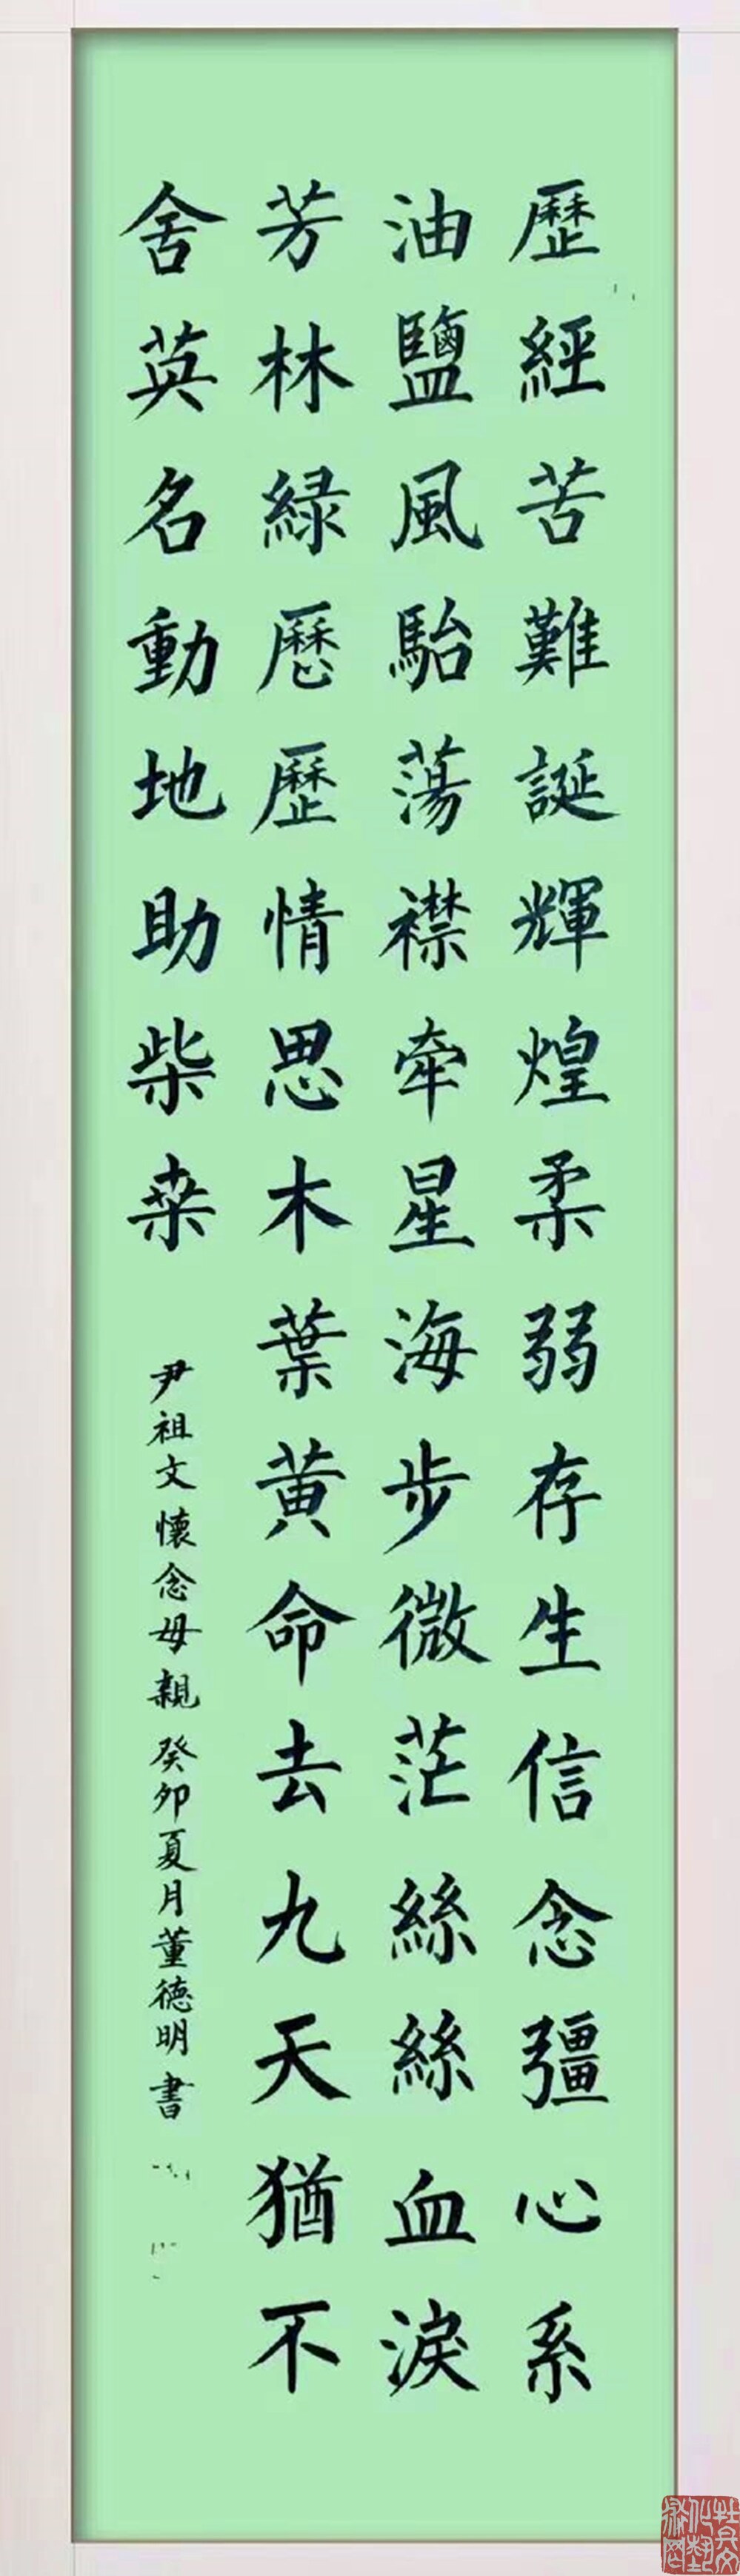 歷經苦難誕輝煌柔弱存生信念彊心系
油鹽風駘蕩襟牽星海步微茫絲絲血淚
芳林緑歷歷情思木葉黃命去九天猶不
舍英名動地助柴桒
尹祖文懷念母親癸卯夏月董德明書